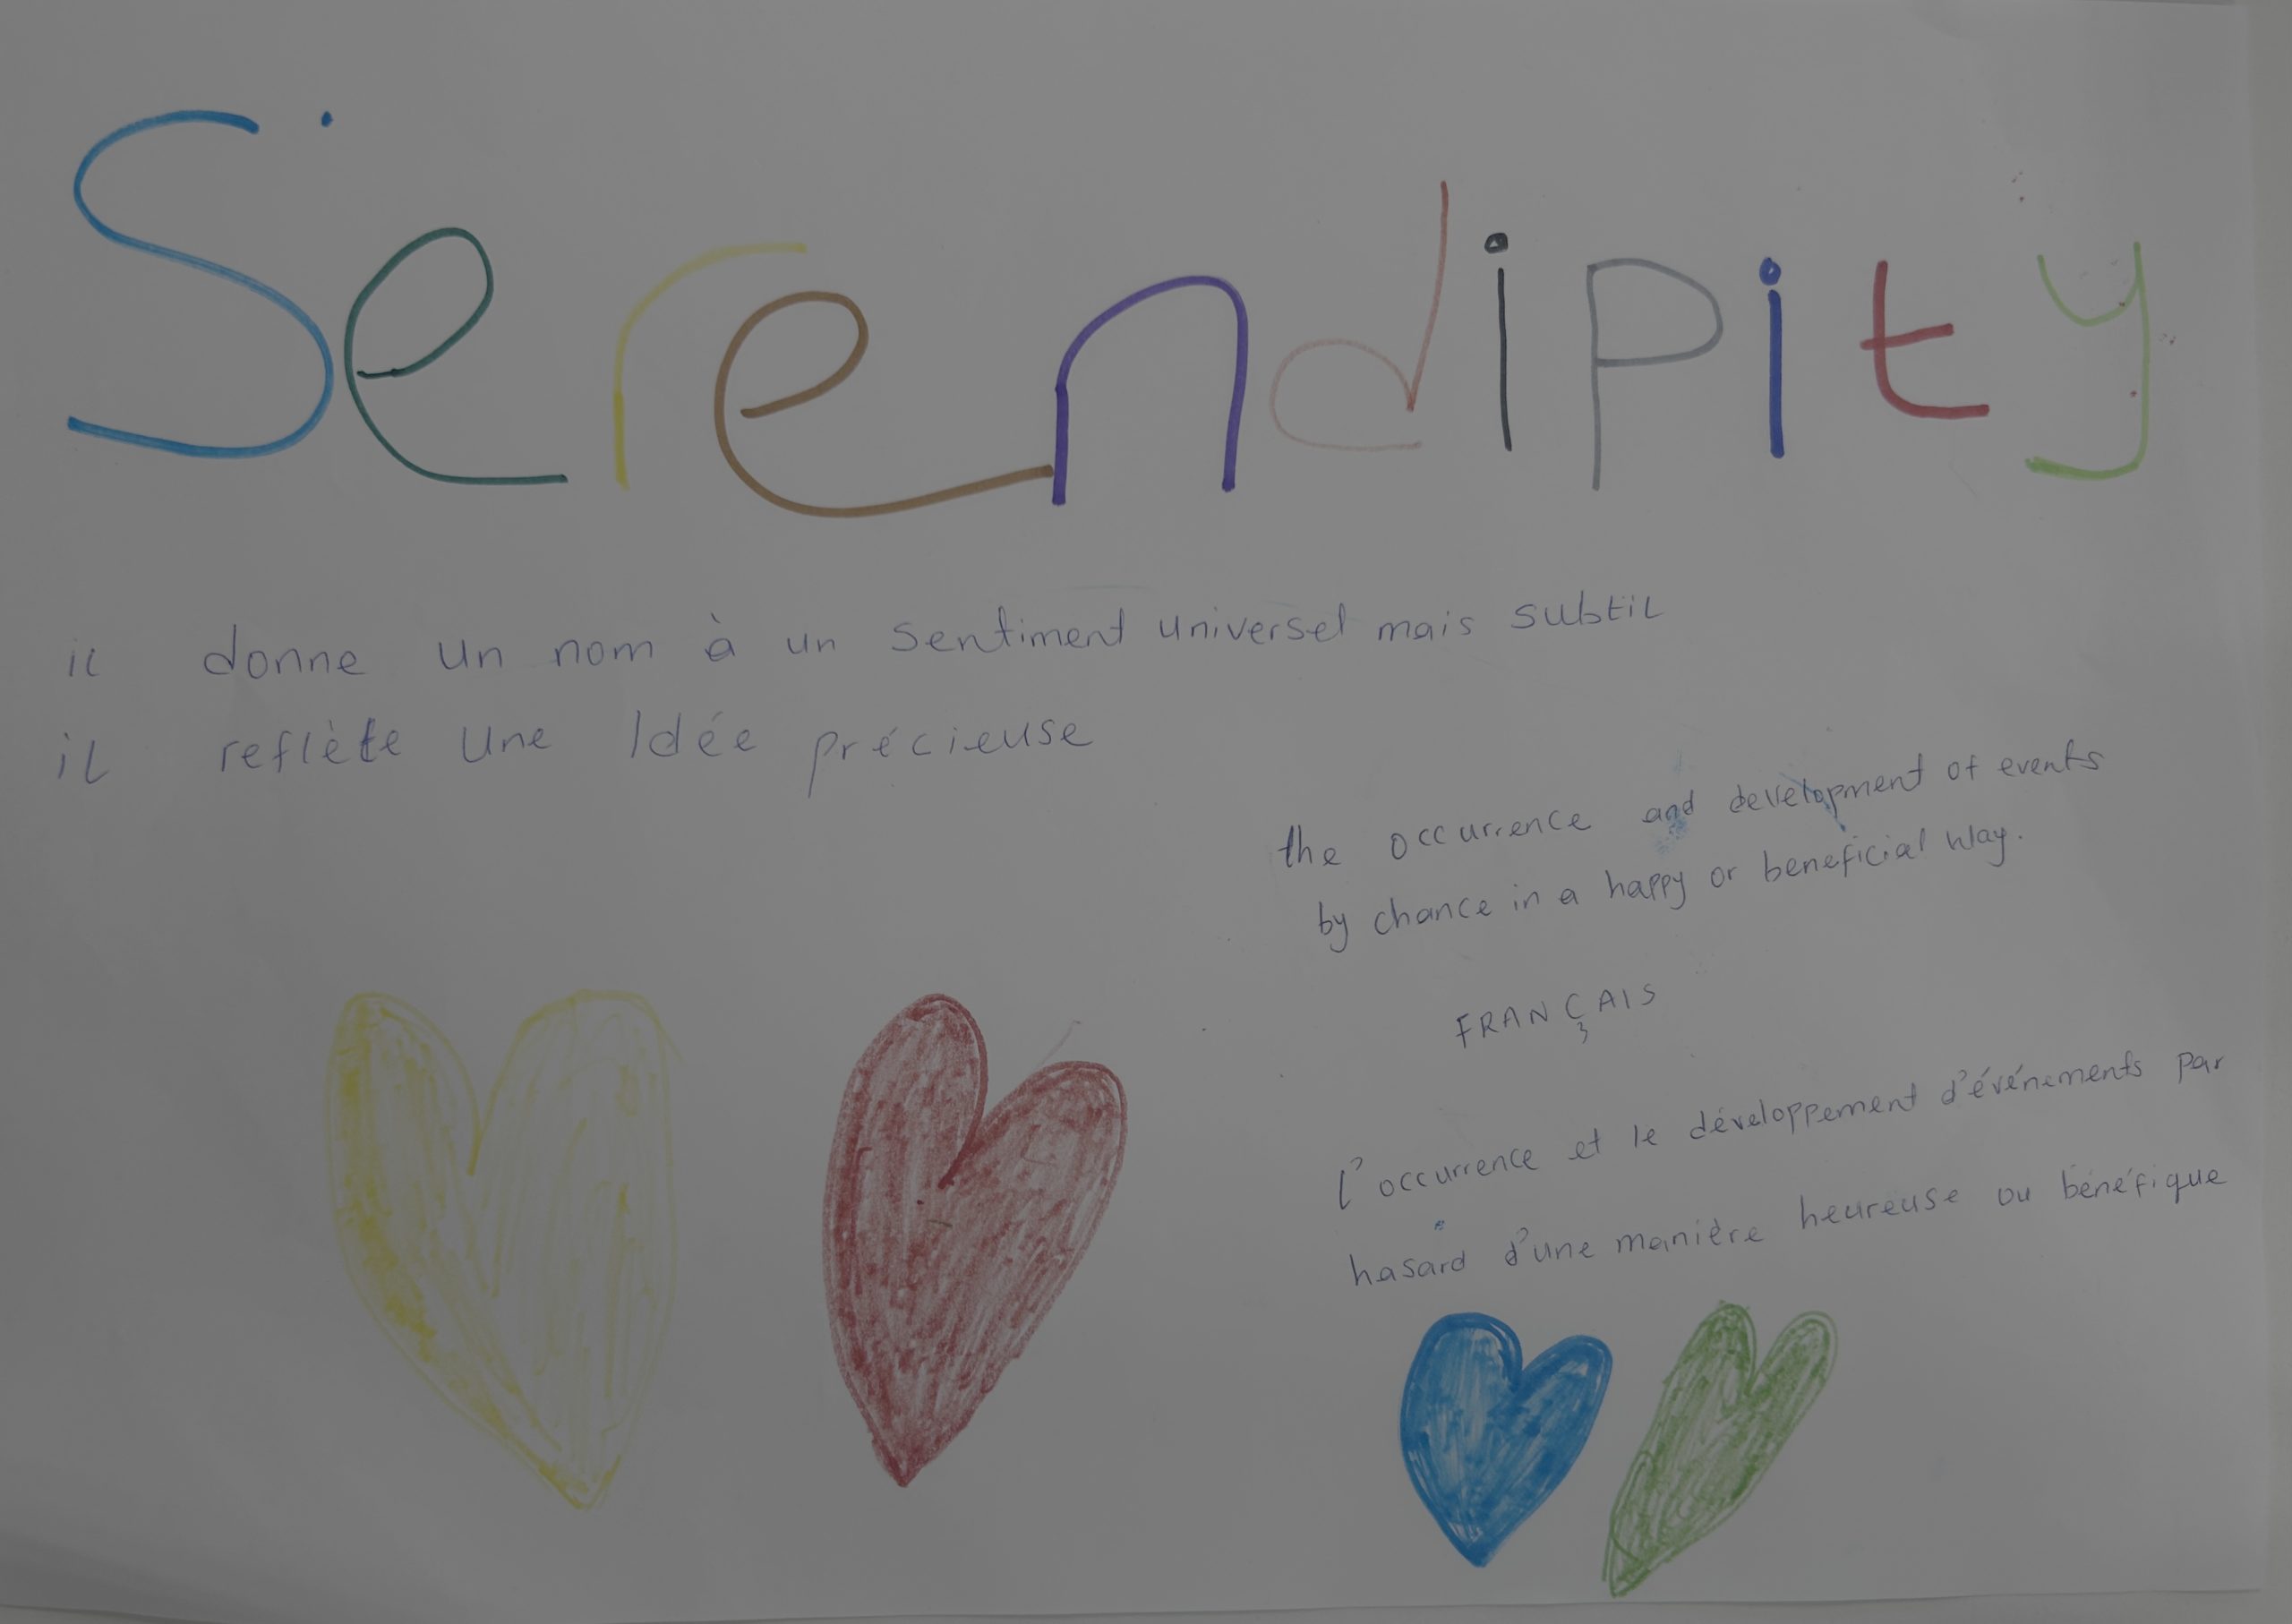 Serendipity
il donne un nom à un sentiment universel mais subtil
il reflète une Idée précieuse
the occurrence and development of events
by chance in a happy or beneficial way.
FRANÇAIS
l'occurrence et le développement d'événements par
hasard d'une manière heureuse ou bénéfique